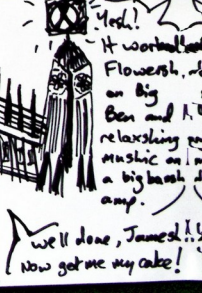 Yesh!
It worked!
Flowersh,
on Big
Ben and
relaxshing
mushic on
a big harsh
amp.
Well done, Jamesh!!
Now get me my cake!